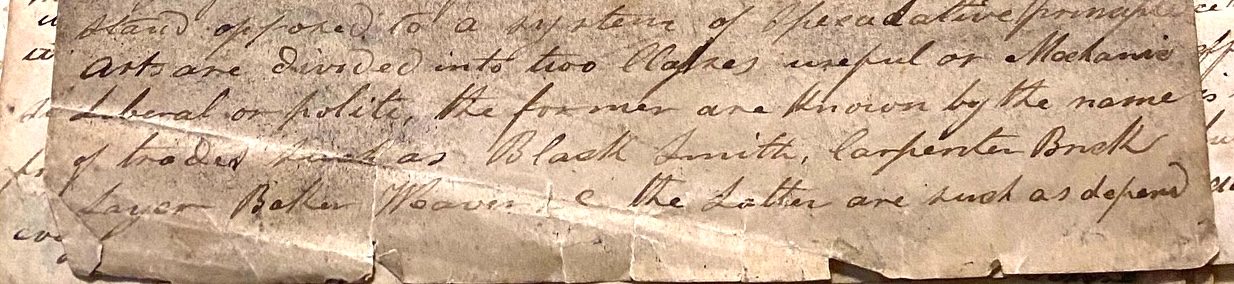 stand opposed to a system of Speculative principle
Arts are divided into two Classes useful or Mechanic
Liberal or polite, the former are known by the name
of trades such as Black Smith, Carpenter Brick
Layer Baker Weaver &c the Latter are such as depend